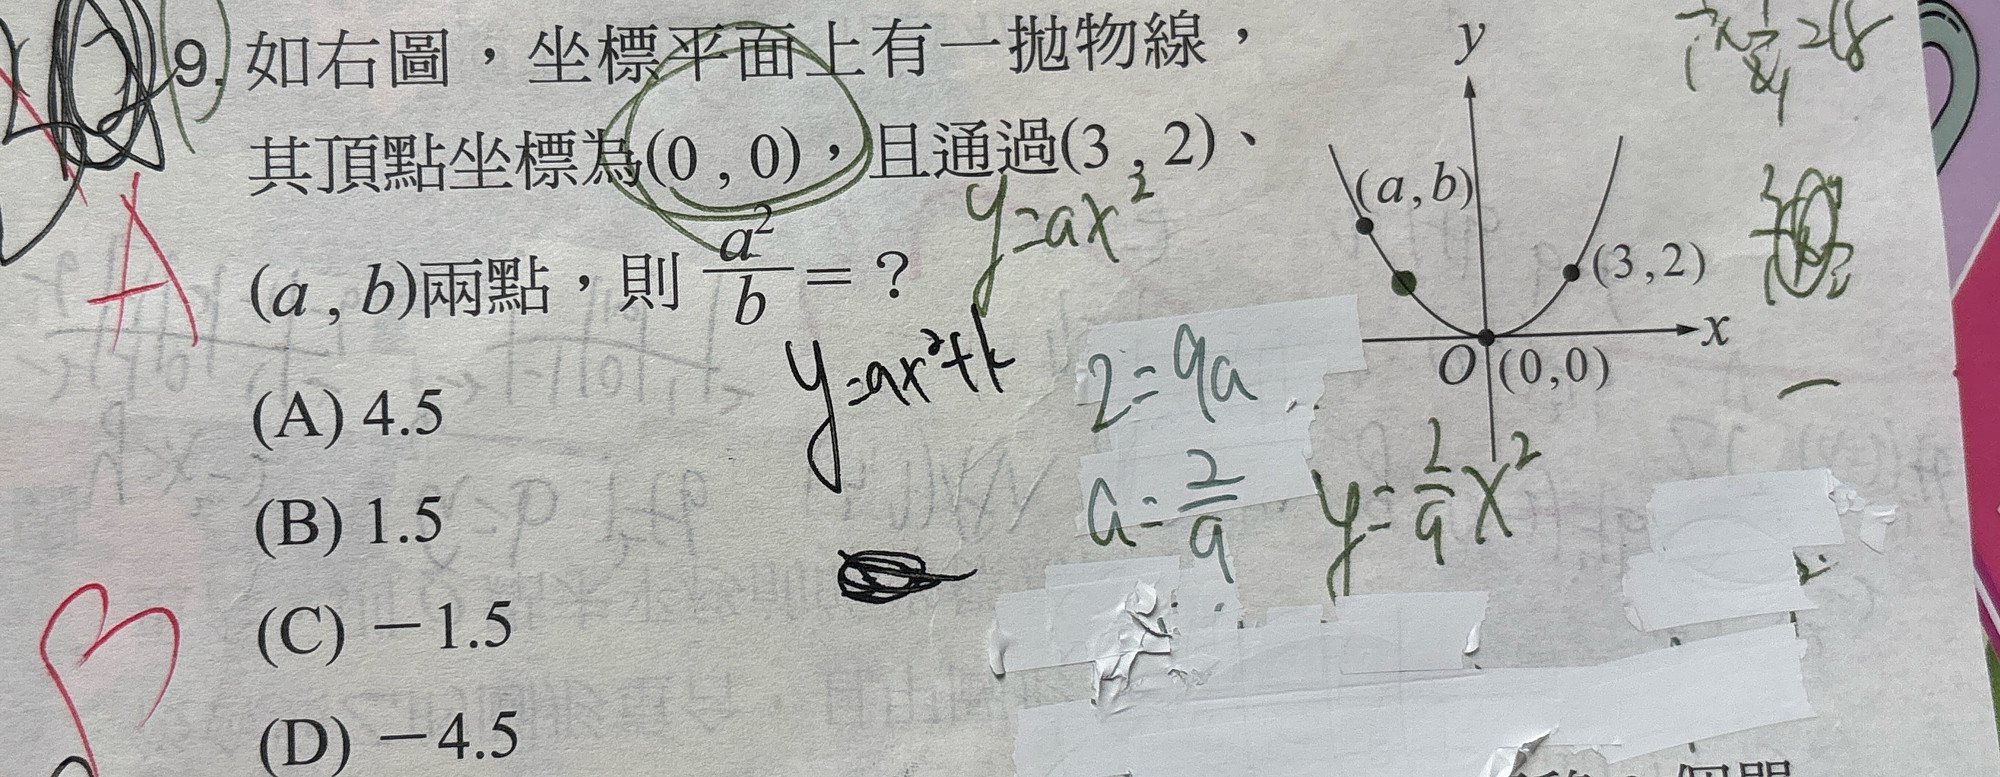 9. 如右圖，坐標平面上有一拋物線，
其頂點坐標為(0 , 0)，且通過(3 , 2)、
(a , b)兩點，則 a²/b = ？
(A) 4.5
(B) 1.5
(C) －1.5
(D) －4.5
A
y=ax²
y=ax²+k
2=9a
a=2/9
y=2/9x²
y
(a,b)
(3,2)
x
O
(0,0)